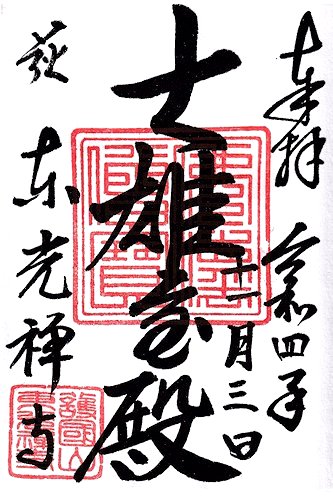 奉拝 令和四年
十一月三日
大雄宝殿
萩 東光禅寺